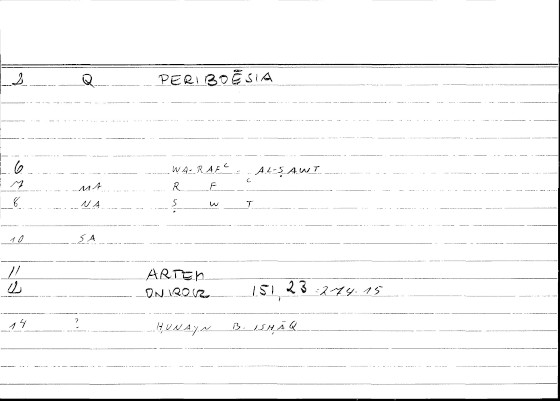 2 Q PERIBOĒSIA
6 WA-RAFᶜ AL-ṢAWT
7 MA R F ᶜ
8 NA Ṣ W T
10 SA
11 ARTEM
12 ONIROCR 151,23 = 274.15
14 ? ḤUNAYN B. ISḤĀQ